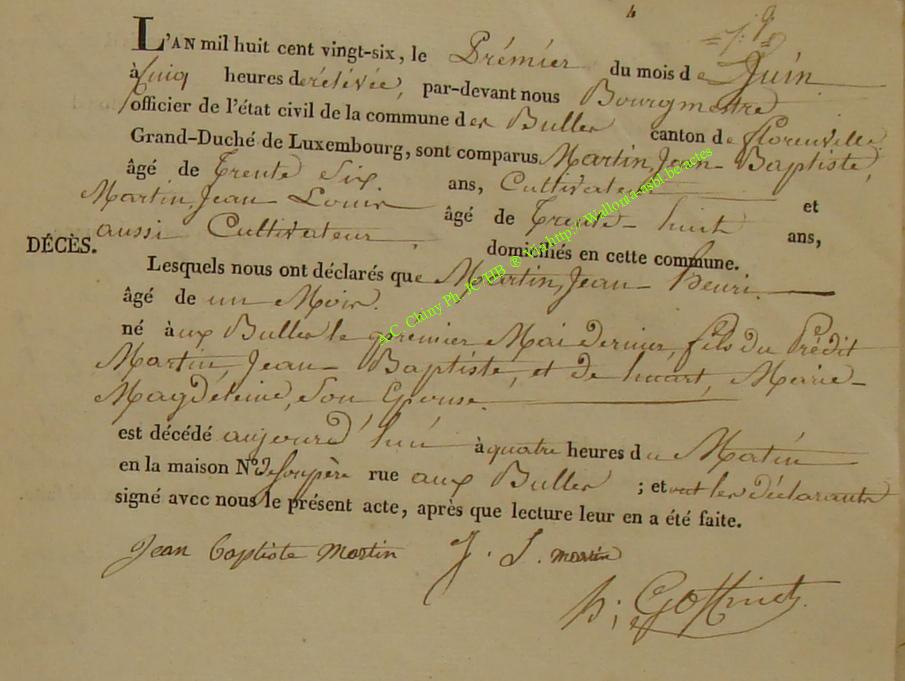 N° 9
L'AN mil huit cent vingt-six, le Prémier du mois de Juin
à Cinq heures de rélévée, par-devant nous Bourgmestre
officier de l'état civil de la commune des Bulles canton de florenville
Grand-Duché de Luxembourg, sont comparus Martin, Jean-Baptiste,
âgé de Trente Six ans, Cultivateur et
Martin, Jean Louis âgé de Trente-huit ans,
aussi Cultivateur, domiciliés en cette commune.
DÉCÈS.
Lesquels nous ont déclarés que Martin, Jean-Henri.
âgé de un Mois.
né à ux Bulles le premier Mai dernier, fils du Prédit
Martin, Jean-Baptiste, et de huart, Marie-
Magdeleine, Son Epouse.
est décédé aujourd'hui à quatre heures du Matin
en la maison N° de son père rue aux Bulles ; et ont les déclarants
signé avec nous le présent acte, après que lecture leur en a été faite.
Jean baptiste martin J. L. martin
h; Goffinet
A.C. Chiny Ph. JC HB ® Via http://Wallonia-asbl.be:actes